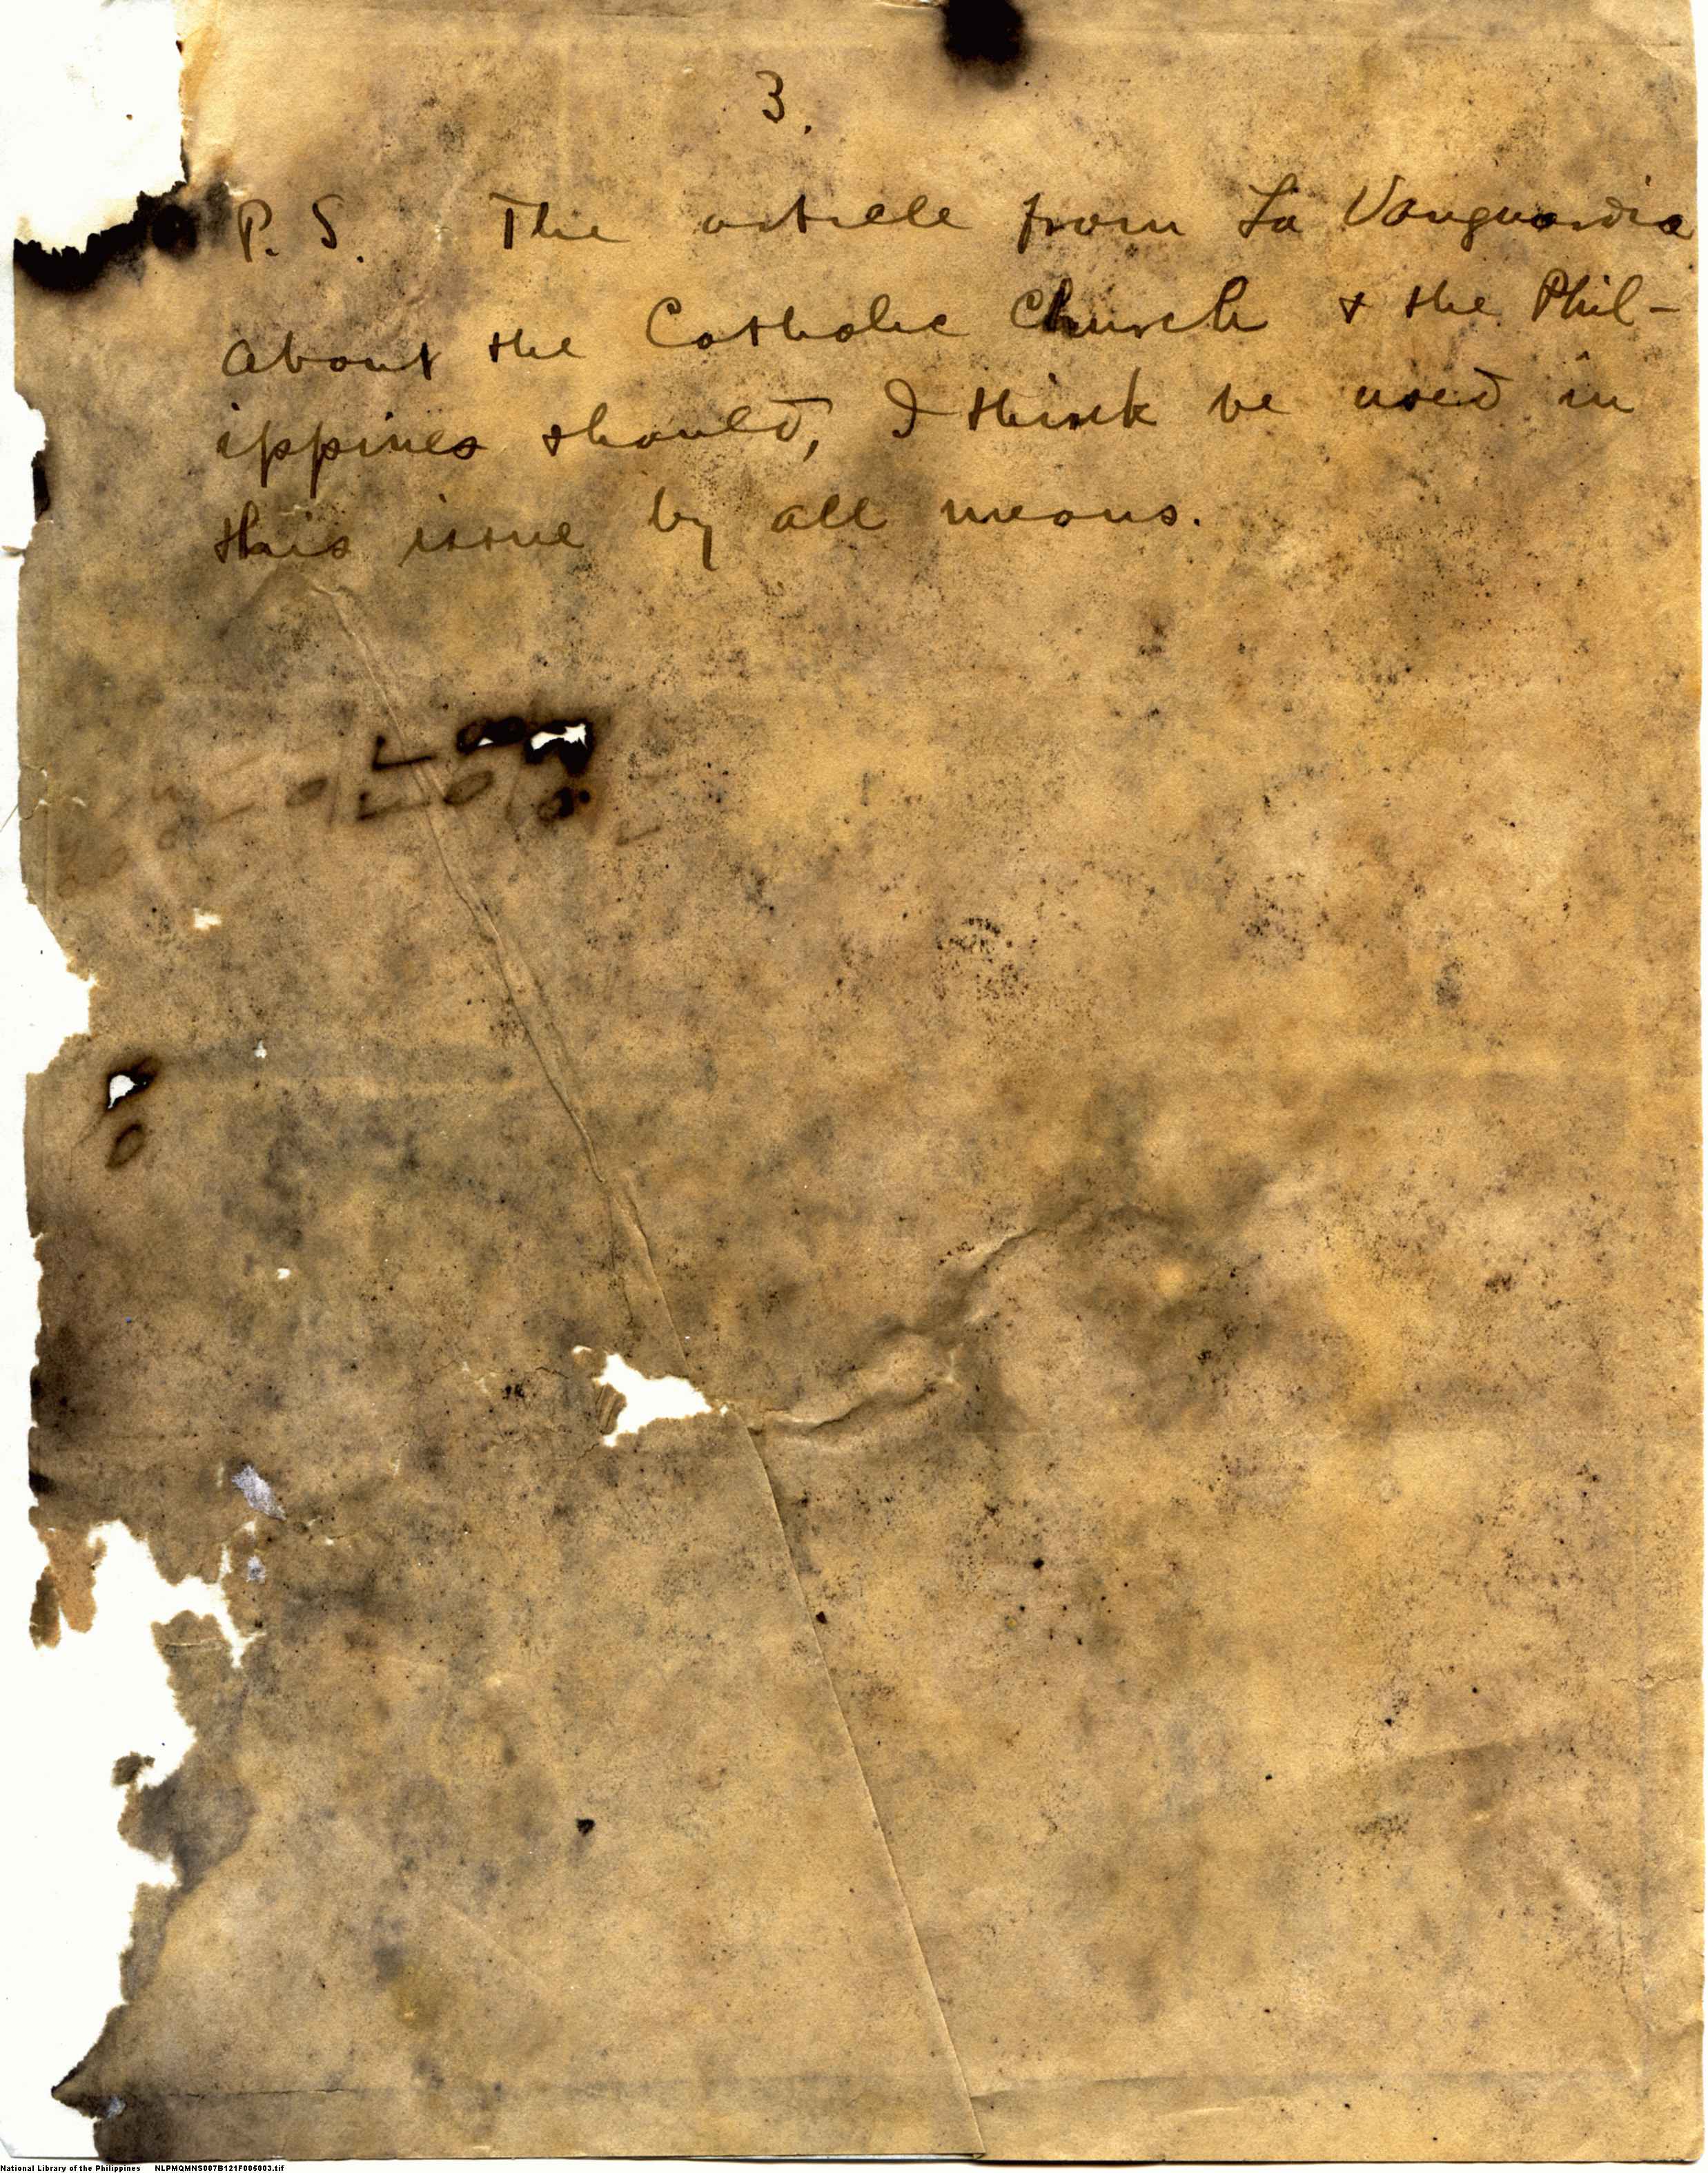 3.
P. S. The article from La Vanguardia
about the Catholic Church & the Phil-
ippines should, I think be used in
this issue by all means.
National Library of the Philippines NLPMQMNS007B121F005003.tif